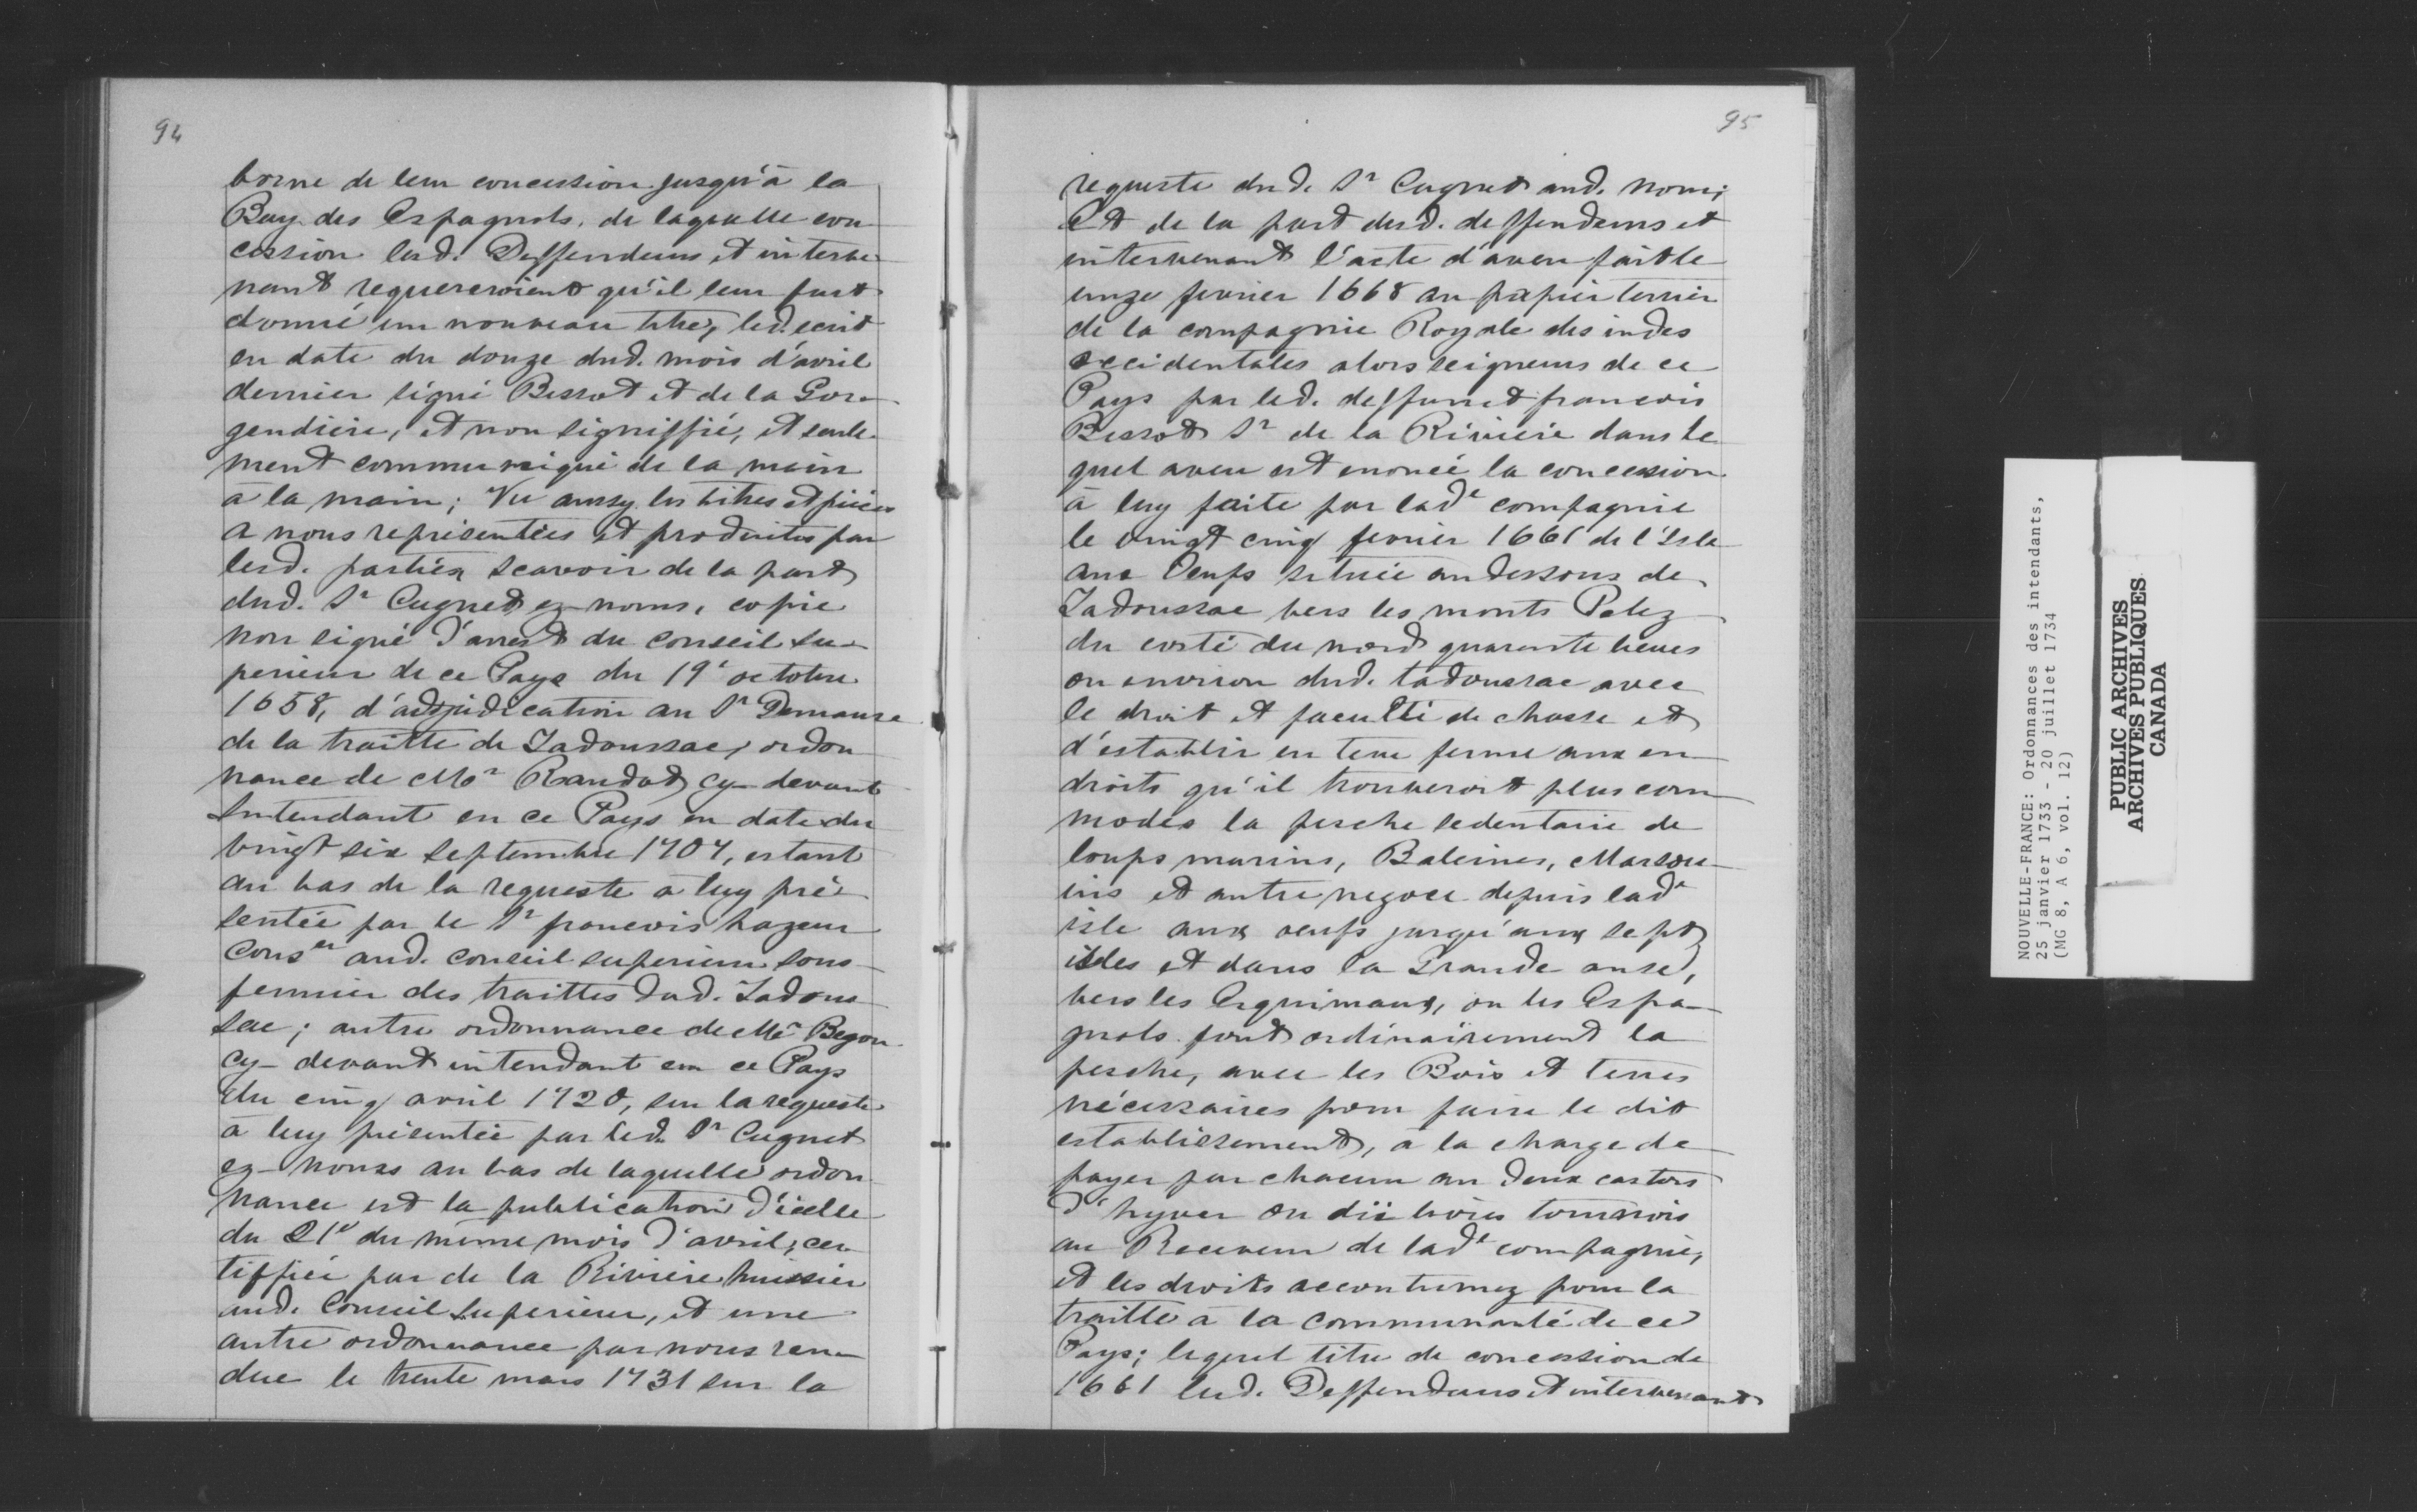 94
borne de leur concession jusqu'à la
Bay des Espagnols, de laquelle con
cession lesd. Deffendeurs, et interve
nant requereroient qu'il leur fust
donné un nouveau titre, led. ecrit
en date du douze dud. mois d'avril
dernier signé Bissot et de la Gor
gendiere, et non signiffié, et seule
ment communiqué de la main
à la main; Vu aussy les titres et pièces
a nous représentées et produites par
lesd. parties scavoir de la part
dud. Sr Cugnet ez noms, copie
non signé d'arrest du conseil su
perieur de ce Pays du 19e octobre
1658, d'adjudication au Sr Demause
de la traitte de Tadoussac, ordon
nance de Mor Raudot cy devant
Intendant en ce Pays en date du
vingt six septembre 1707, estant
au bas de la requeste à luy pré
sentée par le Sr francois hazeur
Conser aud. conseil superieur sous
fermier des traittes dud. Tadous
sac; autre ordonnance de Mr Begon
cy-devant intendant en ce Pays
du cinq avril 1720, sur la requeste
à luy présentée par led. Sr Cugnet
ez-noms au bas de laquelle ordon
nance est la publication d'icelle
du 21e du même mois d'avril, cer
tiffiée par de la Riviere huissier
aud. Conseil Superieur, et une
autre ordonnance par nous ren
due le trente mars 1731 sur la
95
requeste dud. Sr Cugnet aud. nom;
Et de la part desd. deffendeurs et
intervenant l'acte d'aveu fait le
unze fevrier 1668 au papier terrier
de la compagnie Royale des indes
occidentales alors seigneurs de ce
Pays par led. deffunct francois
Bissot Sr de la Riviere dans le
quel aveu est enoncé la concession
à luy faite par lade compagnie
le vingt cinq fevrier 1661 de l'Isle
aux Oeufs située au dessous de
Tadoussac vers les monts Pelez
du costé du nord quarante lieues
ou environ dud. tadoussac avec
le droit et faculté de chasse et
d'establir en terre ferme aux en
droits qu'il trouveroit plus com
modes la pesche sedentaire de
loups marins, Baleines, Marsou
ins et autre negoce depuis lade
isle aux oeufs jusqu'aux sept
isles et dans la Grande anse,
vers les Esquimaux, ou les Espa
gnols font ordinairement la
pesche, avec les Bois et terres
nécessaires pour faire le dit
establissement, à la charge de
payer par chacun an deux castors
d'hyver ou dix livres tournois
au Receveur de lade compagnie,
et les droits accoutumez pour la
traitte à la communauté de ce
Pays; lequel titre de concession de
1661 lesd. Deffendeurs et intervenant
NOUVELLE-FRANCE: Ordonnances des intendants,
25 janvier 1733 - 20 juillet 1734
(MG 8, A 6, vol. 12)
PUBLIC ARCHIVES
ARCHIVES PUBLIQUES
CANADA